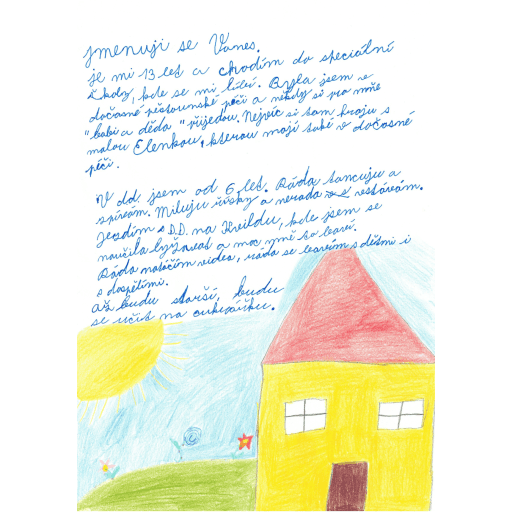 jmenuji se Vanes.
je mi 13 let a chodím do speciální
školy, kde se mi líbí. Byla jsem v
dočasné pěstounské péči a někdy si pro mně
"babi a děda" přijedou. Nejvíc si tam hraju s
malou Elenkou, kterou mají také v dočasné
péči.
V dd. jsem od 6 let. Ráda tancuju a
zpívám. Miluju řízky a nerada vstávám.
Jezdím s D.D. na Kneildu, kde jsem se
naučila lyžovat a moc mně to baví.
Ráda natáčím videa, ráda se bavím s dětmi i
s dospělími.
Až budu starší, budu
se učit na cukrářku.